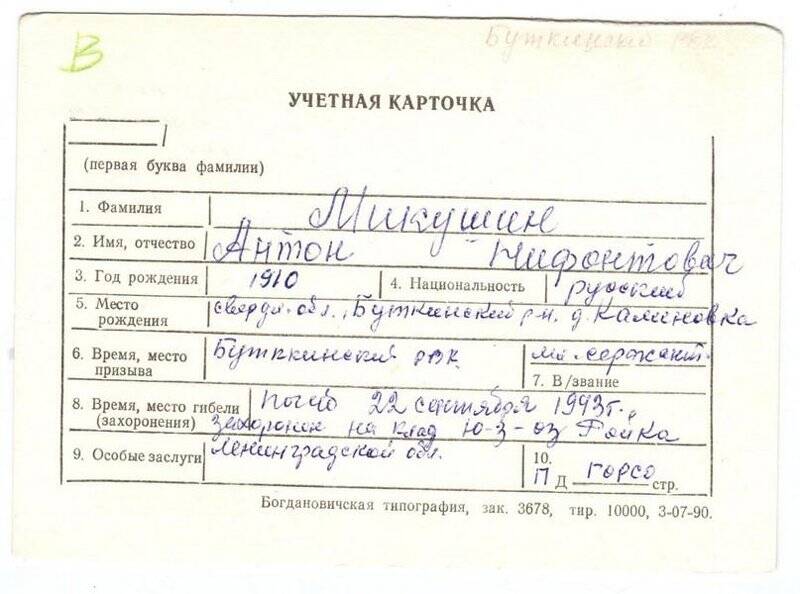 В
Буткинский РВК
УЧЕТНАЯ КАРТОЧКА
(первая буква фамилии)
1. Фамилия Микушин
2. Имя, отчество Антон Нифонтович
3. Год рождения 1910 4. Национальность русский
5. Место рождения свердл. обл., Буткинский р-н, д. Калиновка
6. Время, место призыва Буткинский РВК мл. сержант
7. В/звание
8. Время, место гибели (захоронения) погиб 22 сентября 1943г.,
захоронен на клад ю-з-оз
9. Особые заслуги Ленинградской обл.
10. П Д ГОРСО стр.
Богдановичская типография, зак. 3678, тир. 10000, 3-07-90.